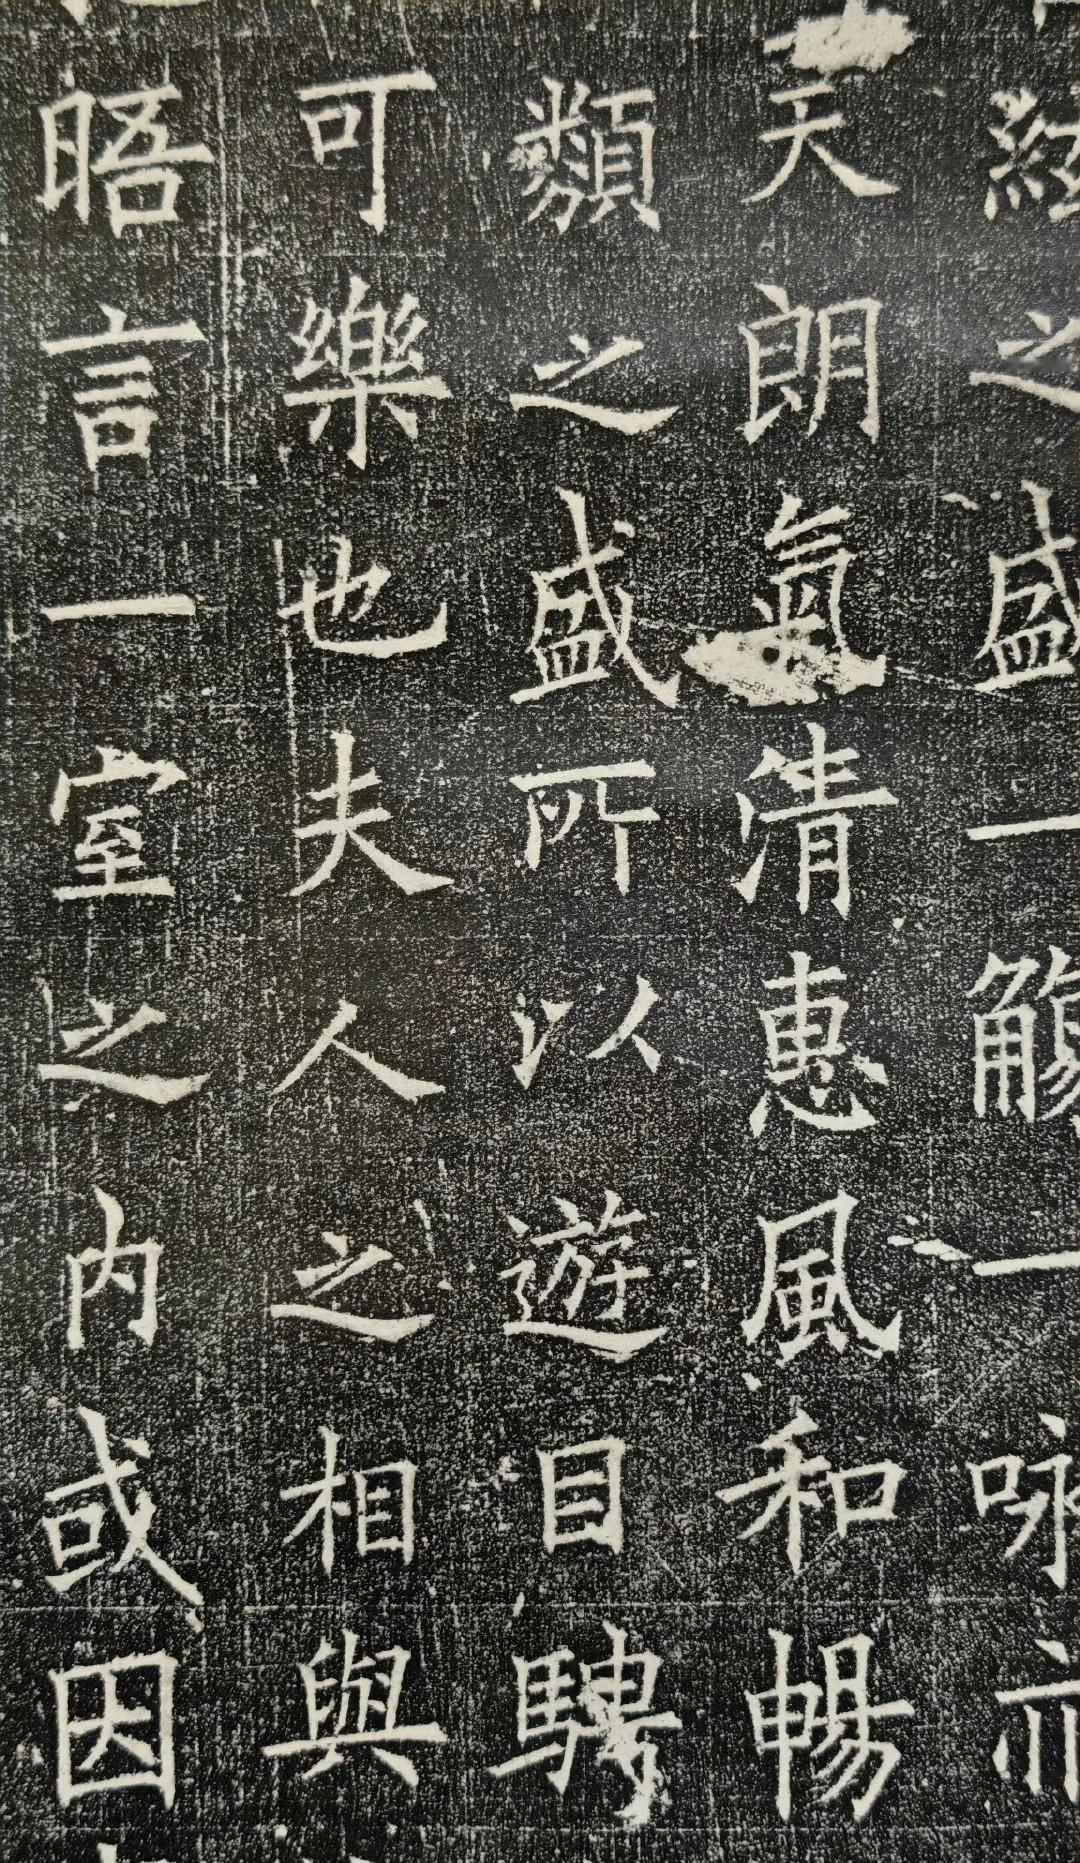 絃之盛一觴一咏亦
天朗氣清惠風和暢
類之盛所以遊目騁
可樂也夫人之相與
晤言一室之內或因